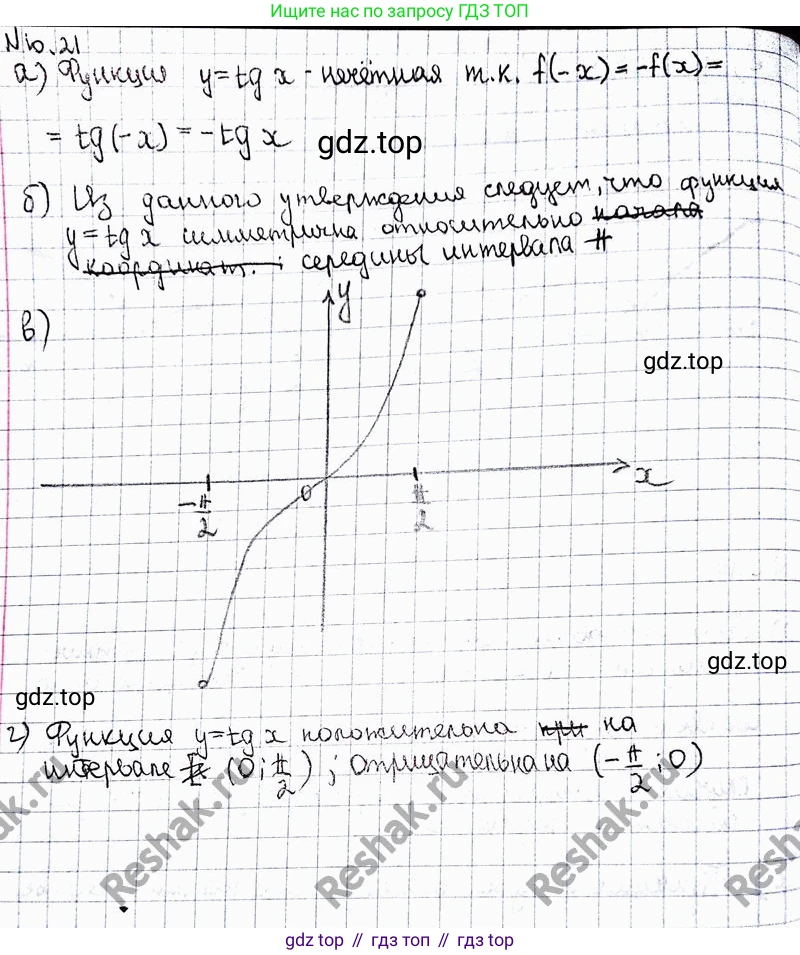 Ищите нас по запросу ГДЗ ТОП
N10.21
а) Функция y=tg x - нечётная т.к. f(-x) = -f(x) =
= tg(-x) = -tg x
gdz.top
б) Из данного утверждения следует, что функция
y=tg x симметрична относительно начала
координат. ; середины интервала π
в)
y
gdz.top
x
0
-π/2
π/2
gdz.top
gdz.top
г) Функция y=tg x положительна при на
интервале (0; π/2) ; Отрицательна на (-π/2; 0)
Reshak.ru
Reshak.ru
Reshak.ru
gdz.top // гдз топ // gdz.top